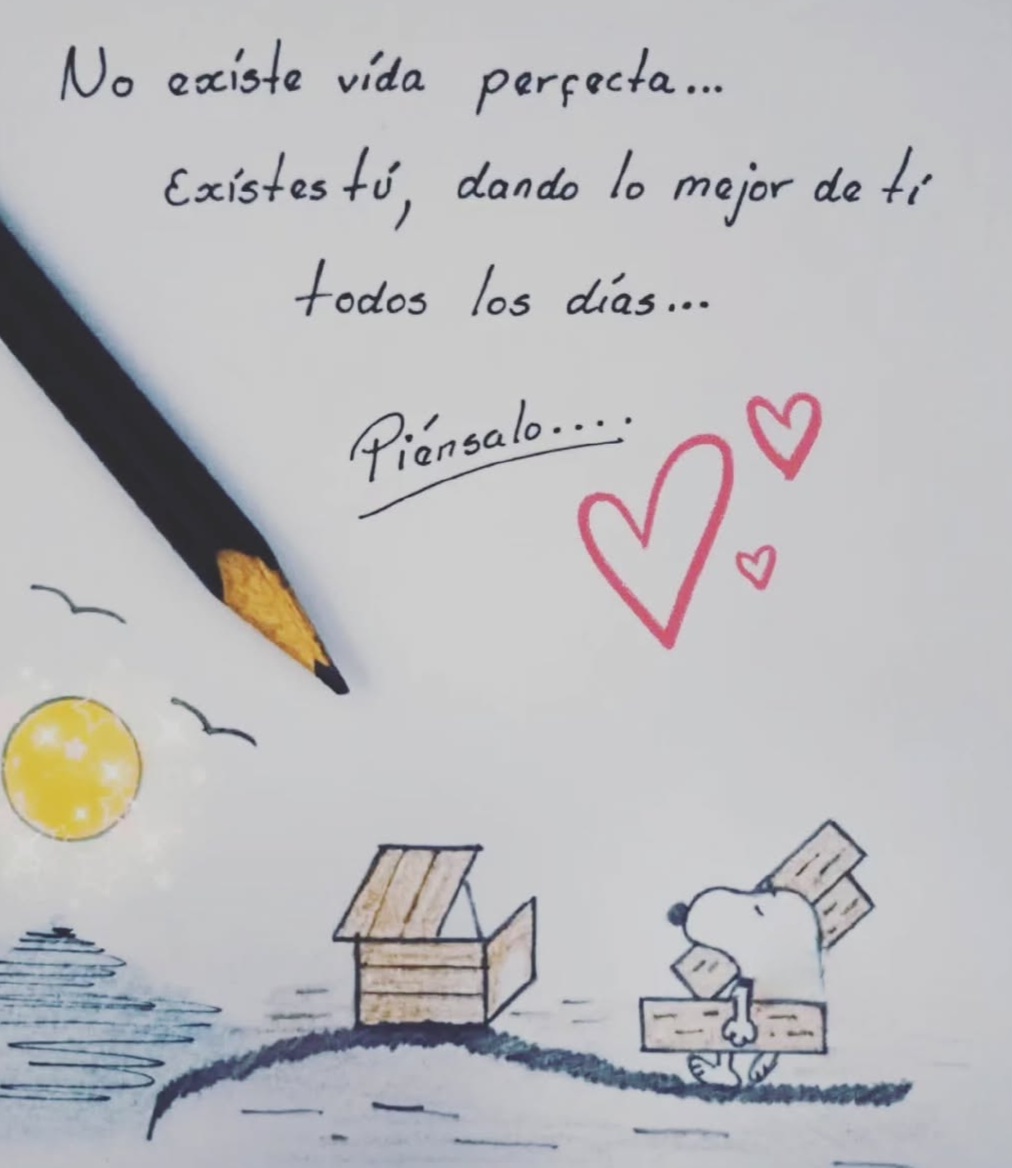 No existe vida perfecta...
Existes tú, dando lo mejor de tí
todos los días...
Piénsalo....